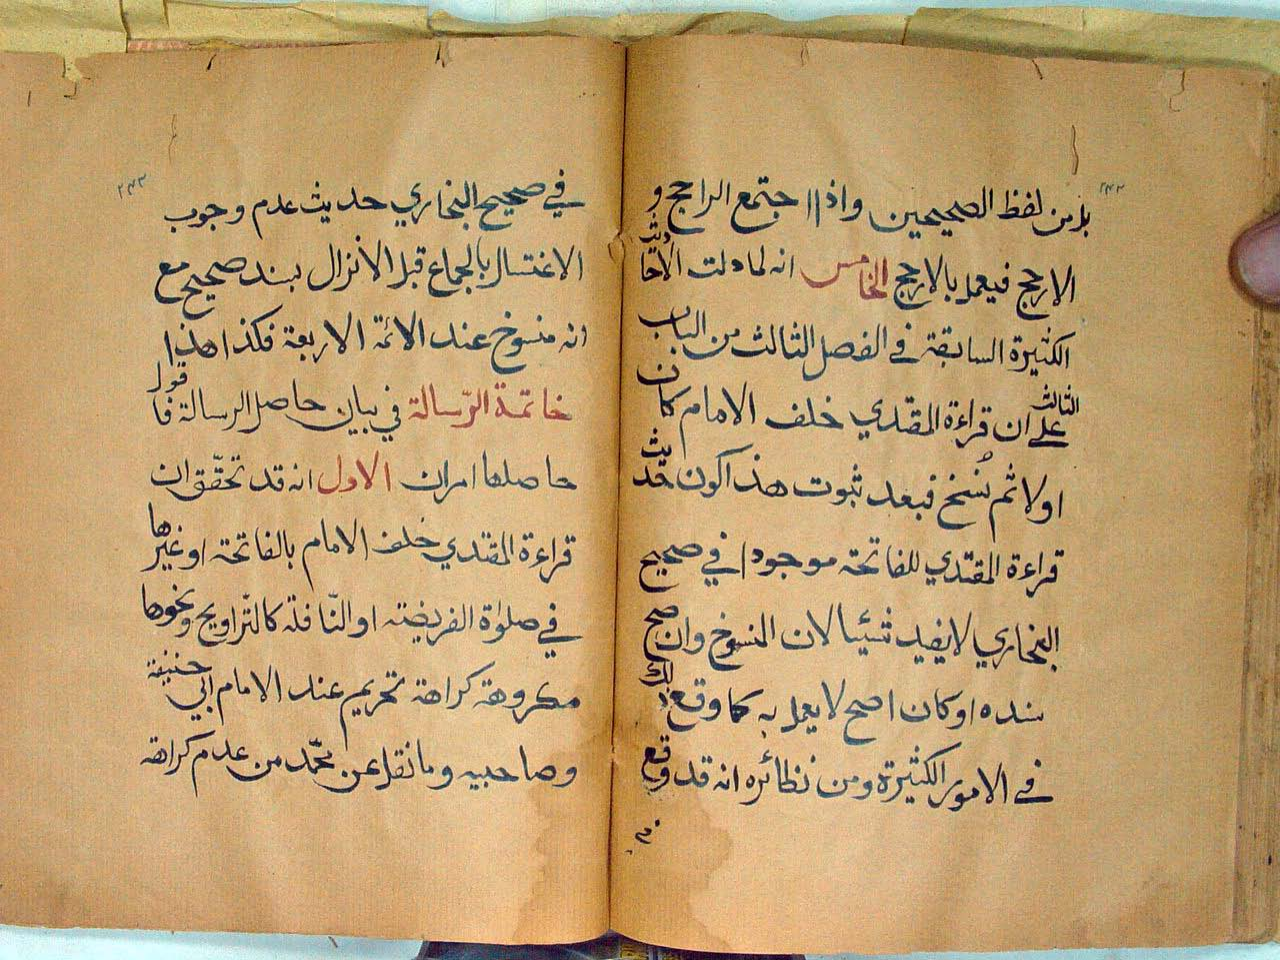 ٢٤٢
بل من لفظ الصحيحين واذا اجتمع الراجح و
الارجح فيعمل بالارجح الخامس انه لما دلت الاحاديث
الكثيرة السابقة في الفصل الثالث من الباب
الثالث على ان قراءة المقتدي خلف الامام كان
اولا ثم نُسخ فبعد ثبوت هذا كون حديث
قراءة المقتدي للفاتحة موجودا في صحيح
البخاري لا يفيد شيئا لان المنسوخ وان صح
سنده او كان اصح لا يعمل به كما وقع ذلك
في الامور الكثيرة ومن نظائره انه قد وقع
في
٢٤٣
في صحيح البخاري حديث عدم وجوب
الاغتسال بالجماع قبل الأنزال بسند صحيح مع
انه منسوخ عند الائمة الاربعة فكذا هذا
خاتمة الرّسالة في بيان حاصل الرسالة فاقول
حاصلها امران الاول انه قد تحقّق ان
قراءة المقتدي خلف الامام بالفاتحة او غيرها
في صلوٰة الفريضة او النّافلة كالتّراويح ونحوها
مكروهة كراهة تحريم عند الامام ابي حنيفة
وصاحبيه وما نقل عن محمّد من عدم كراهة